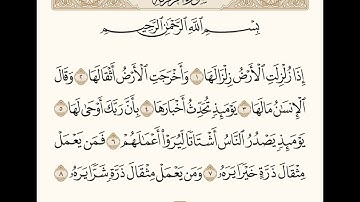 بِسْمِ ٱللَّهِ ٱلرَّحْمَٰنِ ٱلرَّحِيمِ
إِذَا زُلْزِلَتِ ٱلْأَرْضُ زِلْزَالَهَا ١ وَأَخْرَجَتِ ٱلْأَرْضُ أَثْقَالَهَا ٢ وَقَالَ
ٱلْإِنسَٰنُ مَا لَهَا ٣ يَوْمَئِذٍ تُحَدِّثُ أَخْبَارَهَا ٤ بِأَنَّ رَبَّكَ أَوْحَىٰ لَهَا ٥
يَوْمَئِذٍ يَصْدُرُ ٱلنَّاسُ أَشْتَاتًا لِّيُرَوْا۟ أَعْمَٰلَهُمْ ٦ فَمَن يَعْمَلْ
مِثْقَالَ ذَرَّةٍ خَيْرًا يَرَهُۥ ٧ وَمَن يَعْمَلْ مِثْقَالَ ذَرَّةٍ شَرًّا يَرَهُۥ ٨